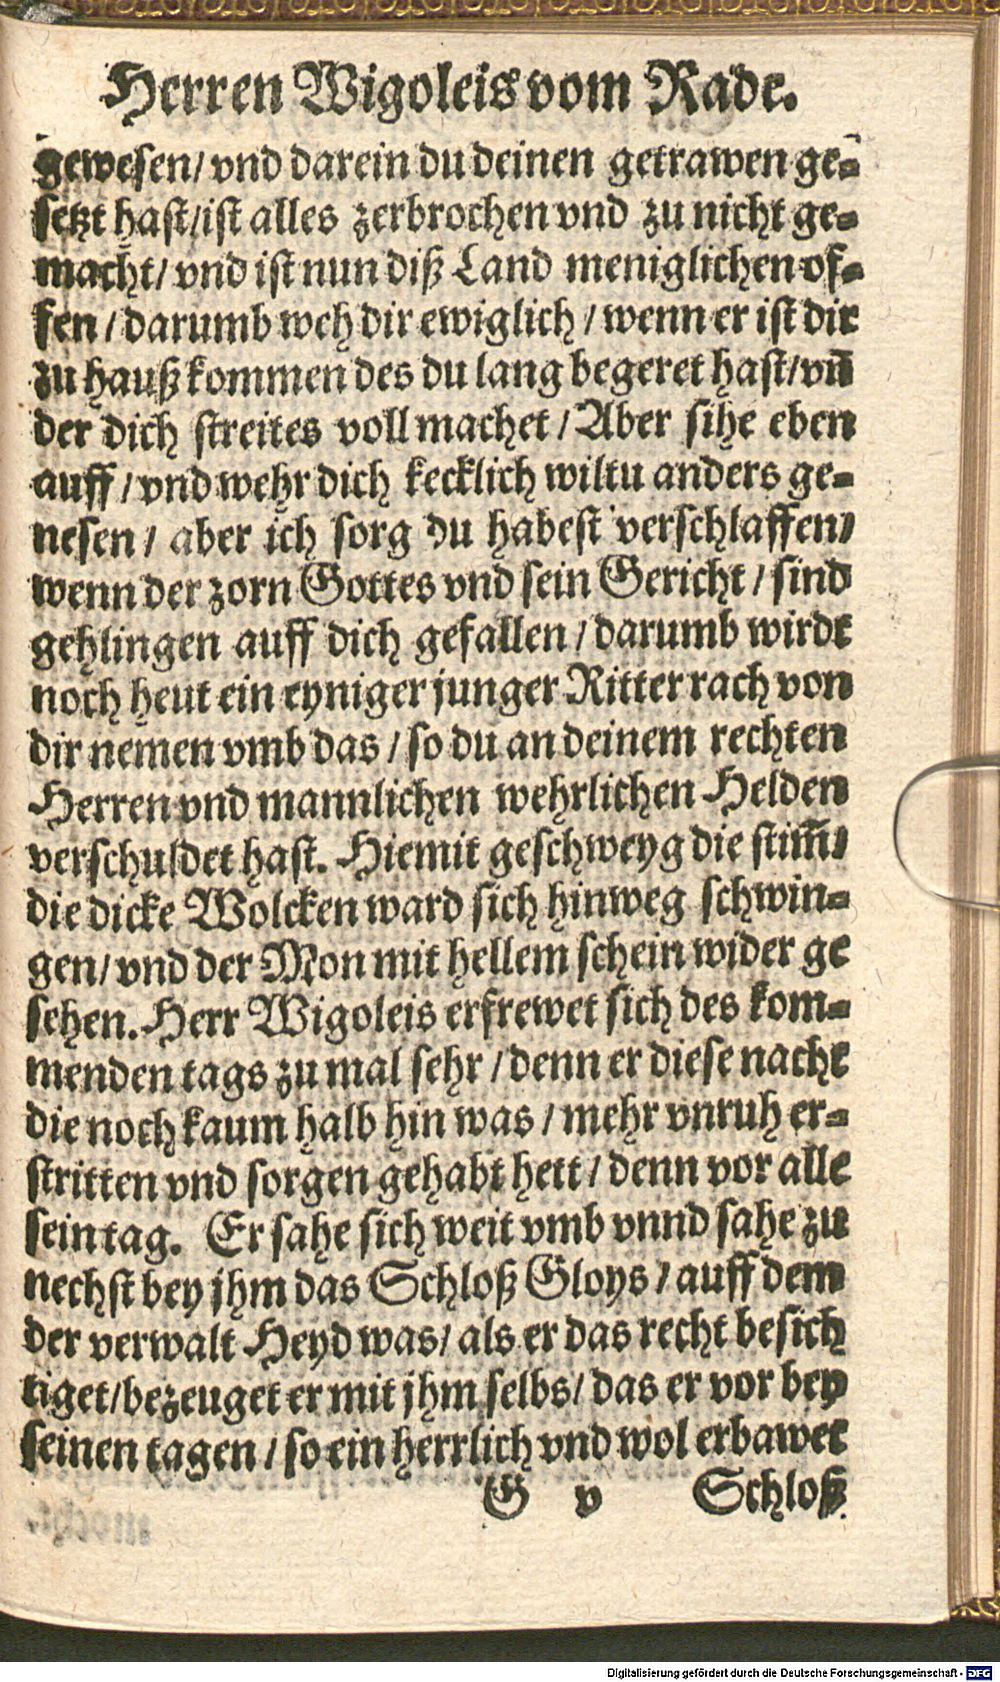 Herren Wigoleis vom Rade.
gewesen/ vnd darein du deinen getrawen ge-
setzt hast/ ist alles zerbrochen vnd zu nicht ge-
macht/ vnd ist nun diß Land meniglichen of-
fen / darumb weh dir ewiglich / wenn er ist dir
zu hauß kommen des du lang begeret hast/ vñ
der dich streites voll machet / Aber sihe eben
auff / vnd wehr dich kecklich wiltu anders ge-
nesen / aber ich sorg du habest verschlaffen/
wenn der zorn Gottes vnd sein Gericht / sind
gehlingen auff dich gefallen / darumb wirdt
noch heut ein eyniger junger Ritter rach von
dir nemen vmb das / so du an deinem rechten
Herren vnd mannlichen wehrlichen Helden
verschuldet hast. Hiemit geschweyg die stim̃/
die dicke Wolcken ward sich hinweg schwin-
gen/ vnd der Mon mit hellem schein wider ge
sehen. Herr Wigoleis erfrewet sich des kom-
menden tags zu mal sehr / denn er diese nacht
die noch kaum halb hin was / mehr vnruh er-
stritten vnd sorgen gehabt hett / denn vor alle
sein tag. Er sahe sich weit vmb vnnd sahe zu
nechst bey jhm das Schloß Gloys / auff dem
der verwalt Heyd was/ als er das recht besich
tiget/ bezeuget er mit jhm selbs/ das er vor bey
seinen tagen / so ein herrlich vnd wol erbawet
G v Schloß
Digitalisierung gefördert durch die Deutsche Forschungsgemeinschaft - DFG